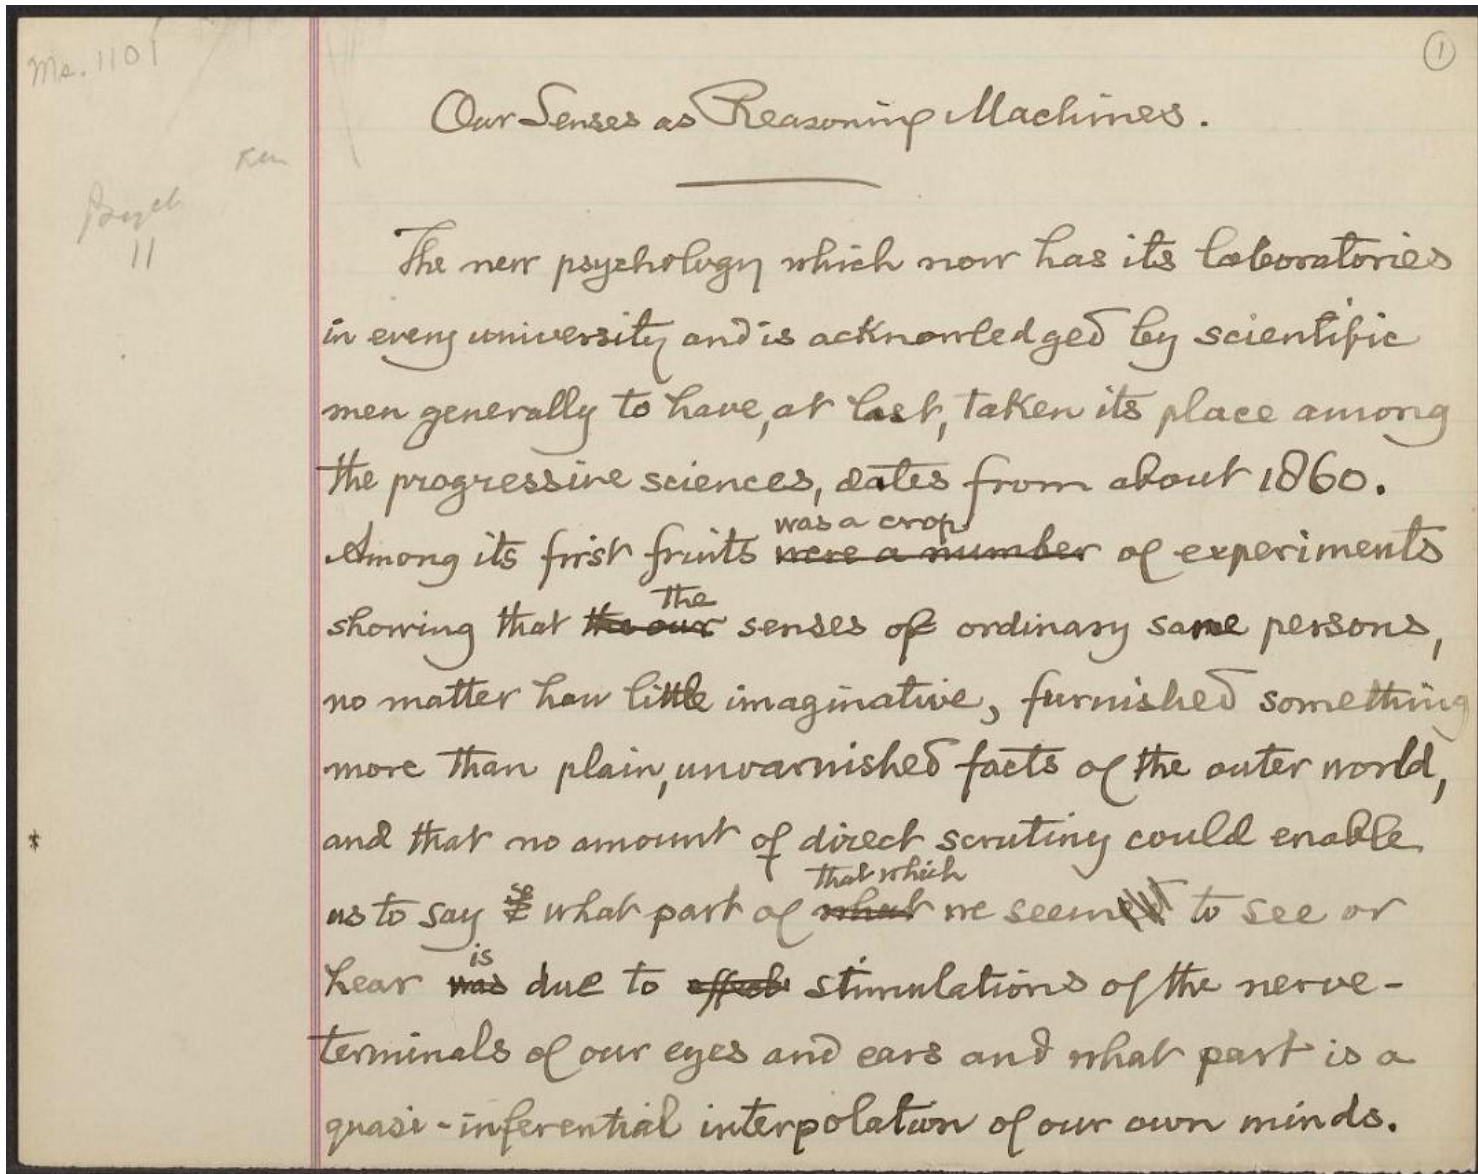 Ms. 1101
1
Our Senses as Reasoning Machines.
Psych
11
The new psychology which now has its laboratories
in every university and is acknowledged by scientific
men generally to have, at last, taken its place among
the progressive sciences, dates from about 1860.
was a crop
Among its first fruits were a number of experiments
the
showing that the our senses of ordinary sane persons,
no matter how little imaginative, furnished something
more than plain, unvarnished facts of the outer world,
* and that no amount of direct scrutiny could enable
that which
us to say what part of what we seemed to see or
is
hear was due to effect stimulations of the nerve-
terminals of our eyes and ears and what part is a
quasi-inferential interpolation of our own minds.